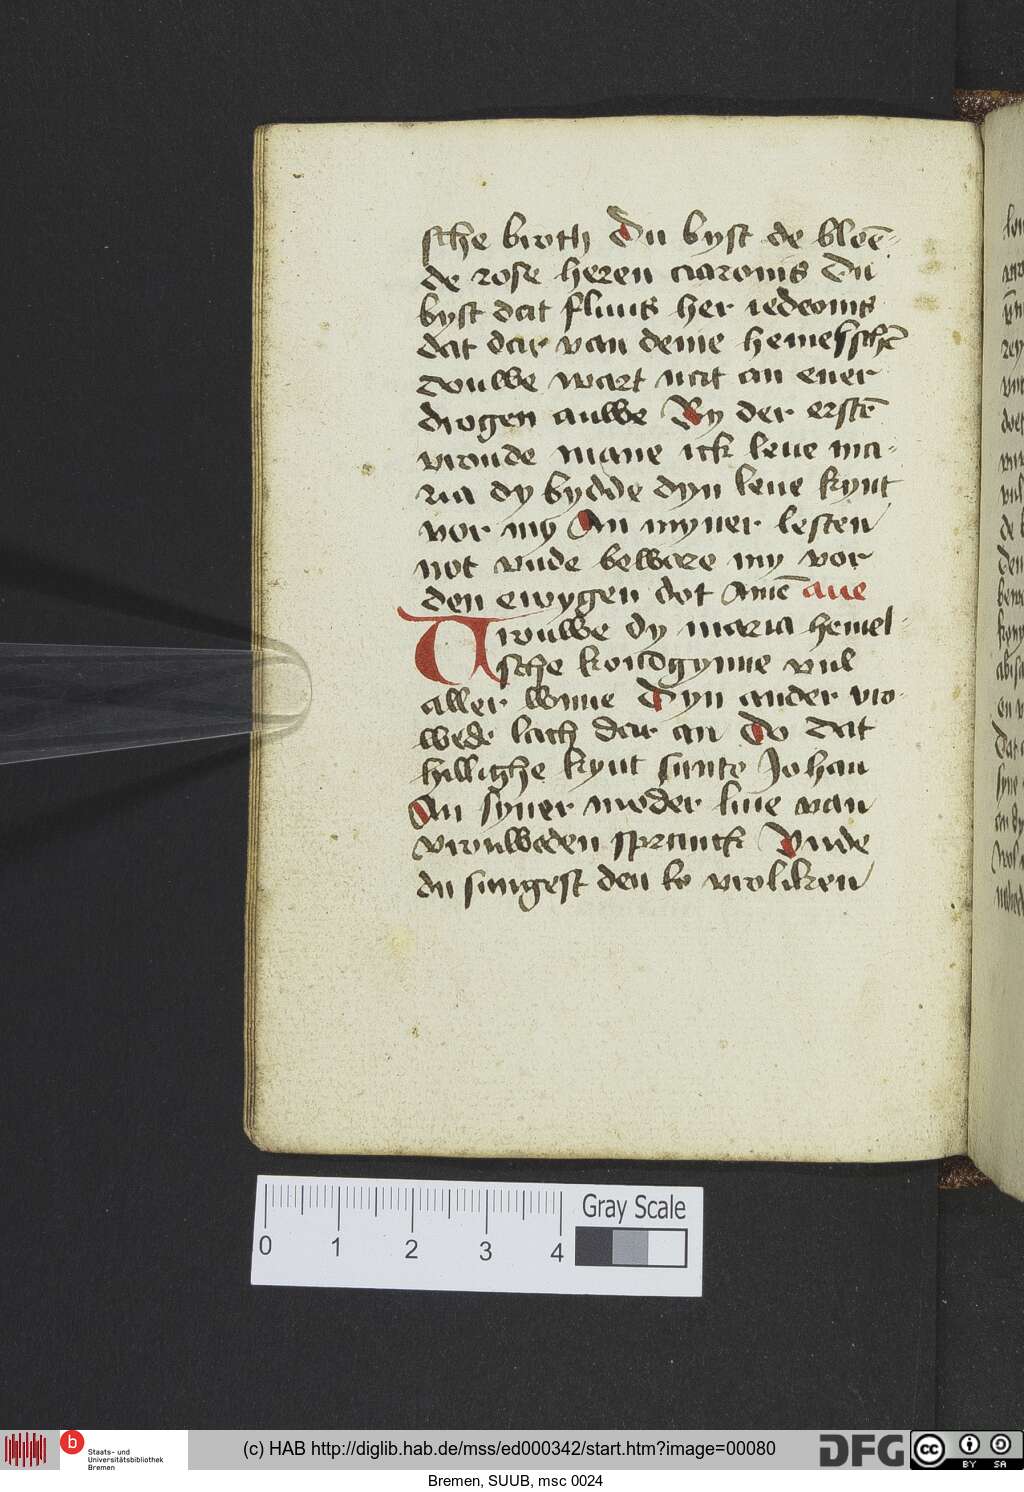 sche broth Du byst de bloē-
de rose heren aaronis Du
byst dat fluus her iedeonis
dat dar van deme hemelschē
douwe wart nat an ener
drogen auwe By der erstē
vroude mane ick leue ma-
ria dy bydde dyn leue kynt
vor my An myner lesten
not vnde beware my vor
den ewygen dot Amē aue
Vrouwe dy maria hemel-
sche konidgynne vul
aller wnne Dyn ander vro-
wede lach dar an Do dat
hillighe kynt sunte Johan
An syner moder liue van
vrouweden spranck Vnde
du sungest den ko vroliken
0 1 2 3 4
Gray Scale
b Staats- und
Universitätsbibliothek
Bremen
(c) HAB http://diglib.hab.de/mss/ed000342/start.htm?image=00080
DFG
cc BY SA
Bremen, SUUB, msc 0024